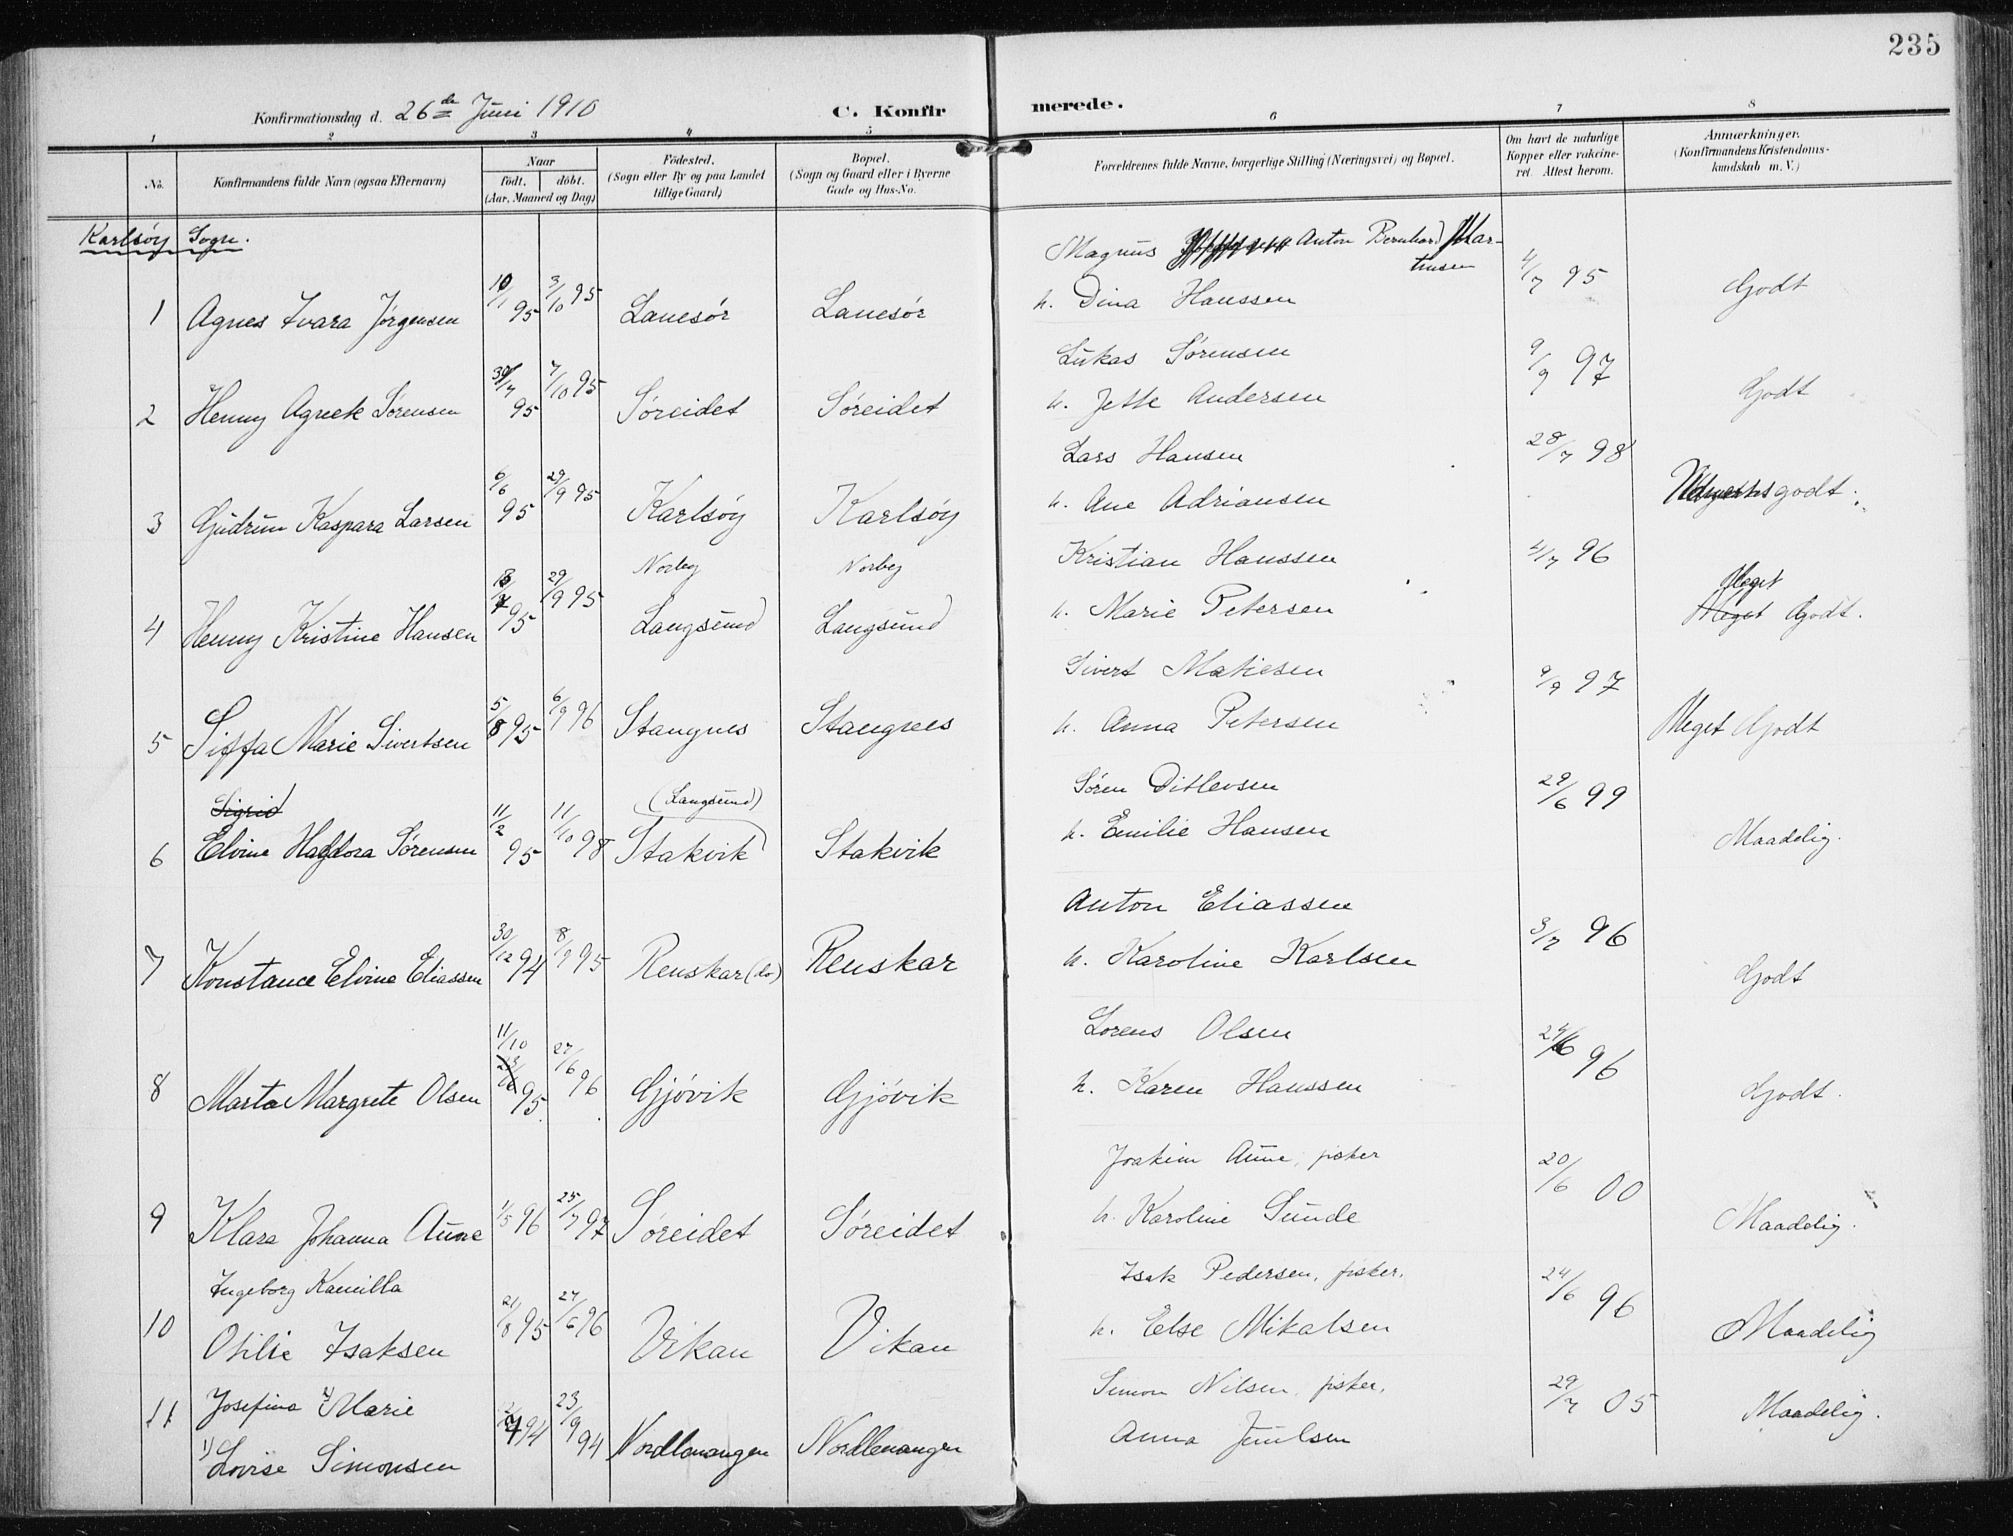 235
Konfirmationsdag d. 26de Juni 1910
C. Konfirmerede.
1 2 3 4 5 6 7 8
No.
Konfirmandens fulde Navn (ogsaa Efternavn)
Naar
födt. döbt.
(Aar, Maaned og Dag)
Födested.
(Sogn eller By og paa Landet
tillige Gaard)
Bopæl.
(Sogn og Gaard eller i Byerne
Gade og Hus-No.
Forældrenes fulde Navne, borgerlige Stilling (Næringsvei) og Bopæl.
Om havt de naturlige
Kopper eller vakcine-
ret. Attest herom.
Anmærkninger.
(Konfirmandens Kristendoms-
kundskab m. V.)
Karlsöy Sogn.
Magnus Anton Bernhard Martinsen
1 Agnes Ivara Jörgensen 10/1 95 3/10 95 Lanesör Lanesör h. Dina Hanssen 4/7 95 Godt
Lukas Sörensen
2 Henny Agnete Sörensen 30/7 95 7/10 95 Söreidet Söreidet h. Jette Andersen 9/9 97 Godt
Lars Hansen
3 Gudrun Kaspara Larsen 6/6 95 29/9 95 Karlsöy Karlsöy h. Ane Adriansen 28/7 98 godt.
Norby Norbey Kristian Hanssen
4 Henny Kristine Hansen 95 29/9 95 Langsund Langsund h. Marie Petersen 4/7 96 Meget Godt.
Sivert Matiesen
5 Siffa Marie Sivertsen 5/8 95 6/9 96 Stangnes Stangnes h. Anna Petersen 9/9 97 Meget Godt
Sigrid (Langsund) Sören Ditlevsen
6 Elvine Halfdora Sörensen 11/2 95 11/10 98 Stakvik Stakvik h. Emilie Hansen 29/6 99 Maadelig.
Anton Eliassen
7 Konstance Elvine Eliassen 30/12 94 8/9 95 Renskar (do) Renskar h. Karoline Karlsen 3/7 96 Godt
Lorens Olsen
8 Marta Margrete Olsen 11/10 95. 27/6 96 Gjövik Gjövik h. Karen Hanssen 24/6 96 Godt.
Joakim Aune, fisker
9 Klara Johanna Aune 1/5 96 25/7 97 Söreidet Söreidet h. Karoline Sunde 20/6 00 Maadelig.
Ingeborg Kamilla Isak Pedersen, fisker.
10 Otilie Isaksen 21/8 95 27/6 96 Vikan Vikan h. Else Mikalsen 24/6 96 Maadelig
Josefina 2) Marie Simon Nilsen, fisker,
11 1) Lovise Simonsen 2/7 94 23/9 94 Nordlenangen Nordlenangen Anna Juulsen 29/7 05 Maadelig.